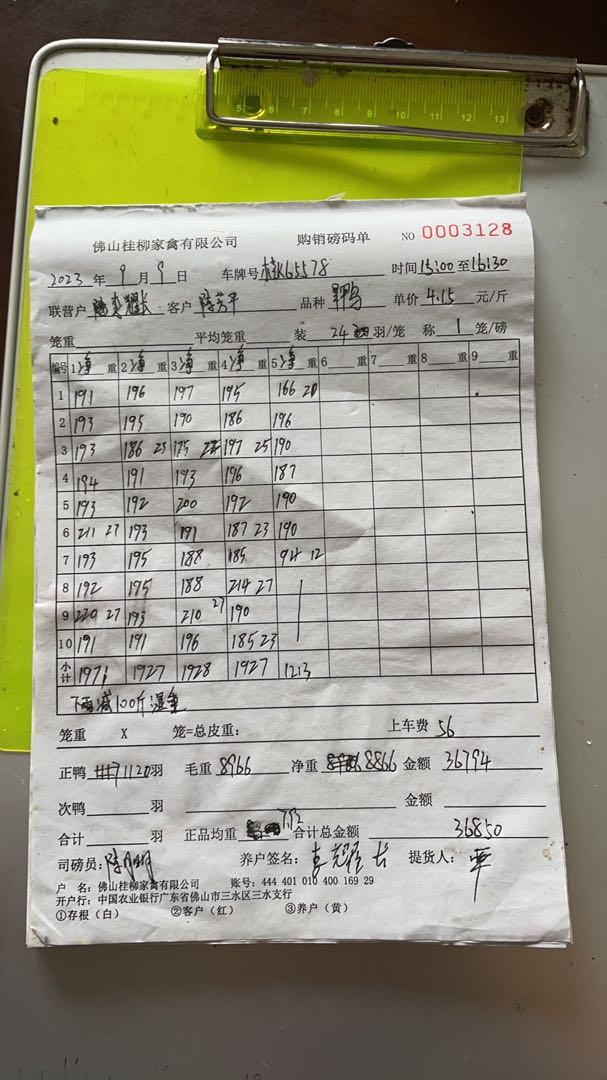 5 6 7 8 9 10 11 12 13
佛山桂柳家禽有限公司 购销磅码单 NO 0003128
2023 年 9 月 9 日 车牌号 桂K65578 时间 15:00 至 16:30
联营户 客户 陈芳平 品种 单价 4.15 元/斤
笼重 平均笼重 装 24 羽/笼 称 1 笼/磅
编号 1 净 重 2 净 重 3 净 重 4 净 重 5 净 重 6 重 7 重 8 重 9 重
1 191 196 197 195 166 20
2 193 195 190 186 196
3 193 186 23 175 197 25 190
4 194 191 193 196 187
5 193 192 200 192 190
6 211 27 193 191 187 23 190
7 193 195 188 185 94 12
8 192 195 188 214 27
9 220 27 193 210 27 190
10 191 191 196 185 23
小计 1971 1927 1928 1927 1213
下雨减100斤湿重
笼重 X 笼=总皮重： 上车费 56
正鸭 1120 羽 毛重 8966 净重 8866 金额 36794
次鸭 羽 金额
合计 羽 正品均重 7.92 合计总金额 36850
司磅员： 养户签名： 提货人：
户 名：佛山桂柳家禽有限公司 账号：444 401 010 400 169 29
开户行：中国农业银行广东省佛山市三水区三水支行
①存根（白） ②客户（红） ③养户（黄）